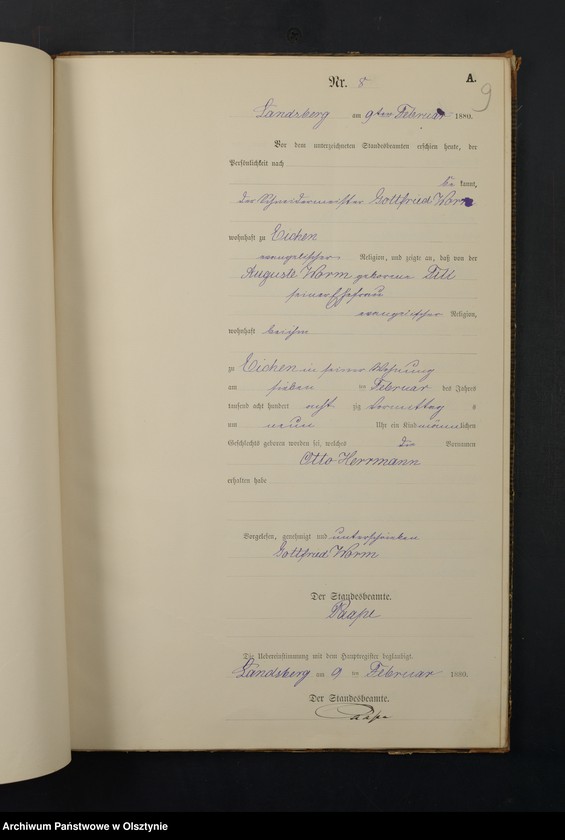 A.
9
Nr. 8
Landsberg am 9ten Februar 1880.
Vor dem unterzeichneten Standesbeamten erschien heute, der
Persönlichkeit nach
be kannt,
der Schneidermeister Gottfried Worm
wohnhaft zu Eichen
evangelischer Religion, und zeigte an, daß von der
Auguste Worm geborene Till
seiner Ehefrau
evangelischer Religion,
wohnhaft bei ihm
zu Eichen in seiner Wohnung
am sieben ten Februar des Jahres
tausend acht hundert acht zig Vormittag s
um neun Uhr ein Kind männlichen
Geschlechts geboren worden sei, welches die Vornamen
Otto Herrmann
erhalten habe
Vorgelesen, genehmigt und unterschrieben
Gottfried Worm
Der Standesbeamte.
Paape
Die Uebereinstimmung mit dem Hauptregister beglaubigt.
Landsberg am 9 ten Februar 1880.
Der Standesbeamte.
Paape
Archiwum Państwowe w Olsztynie